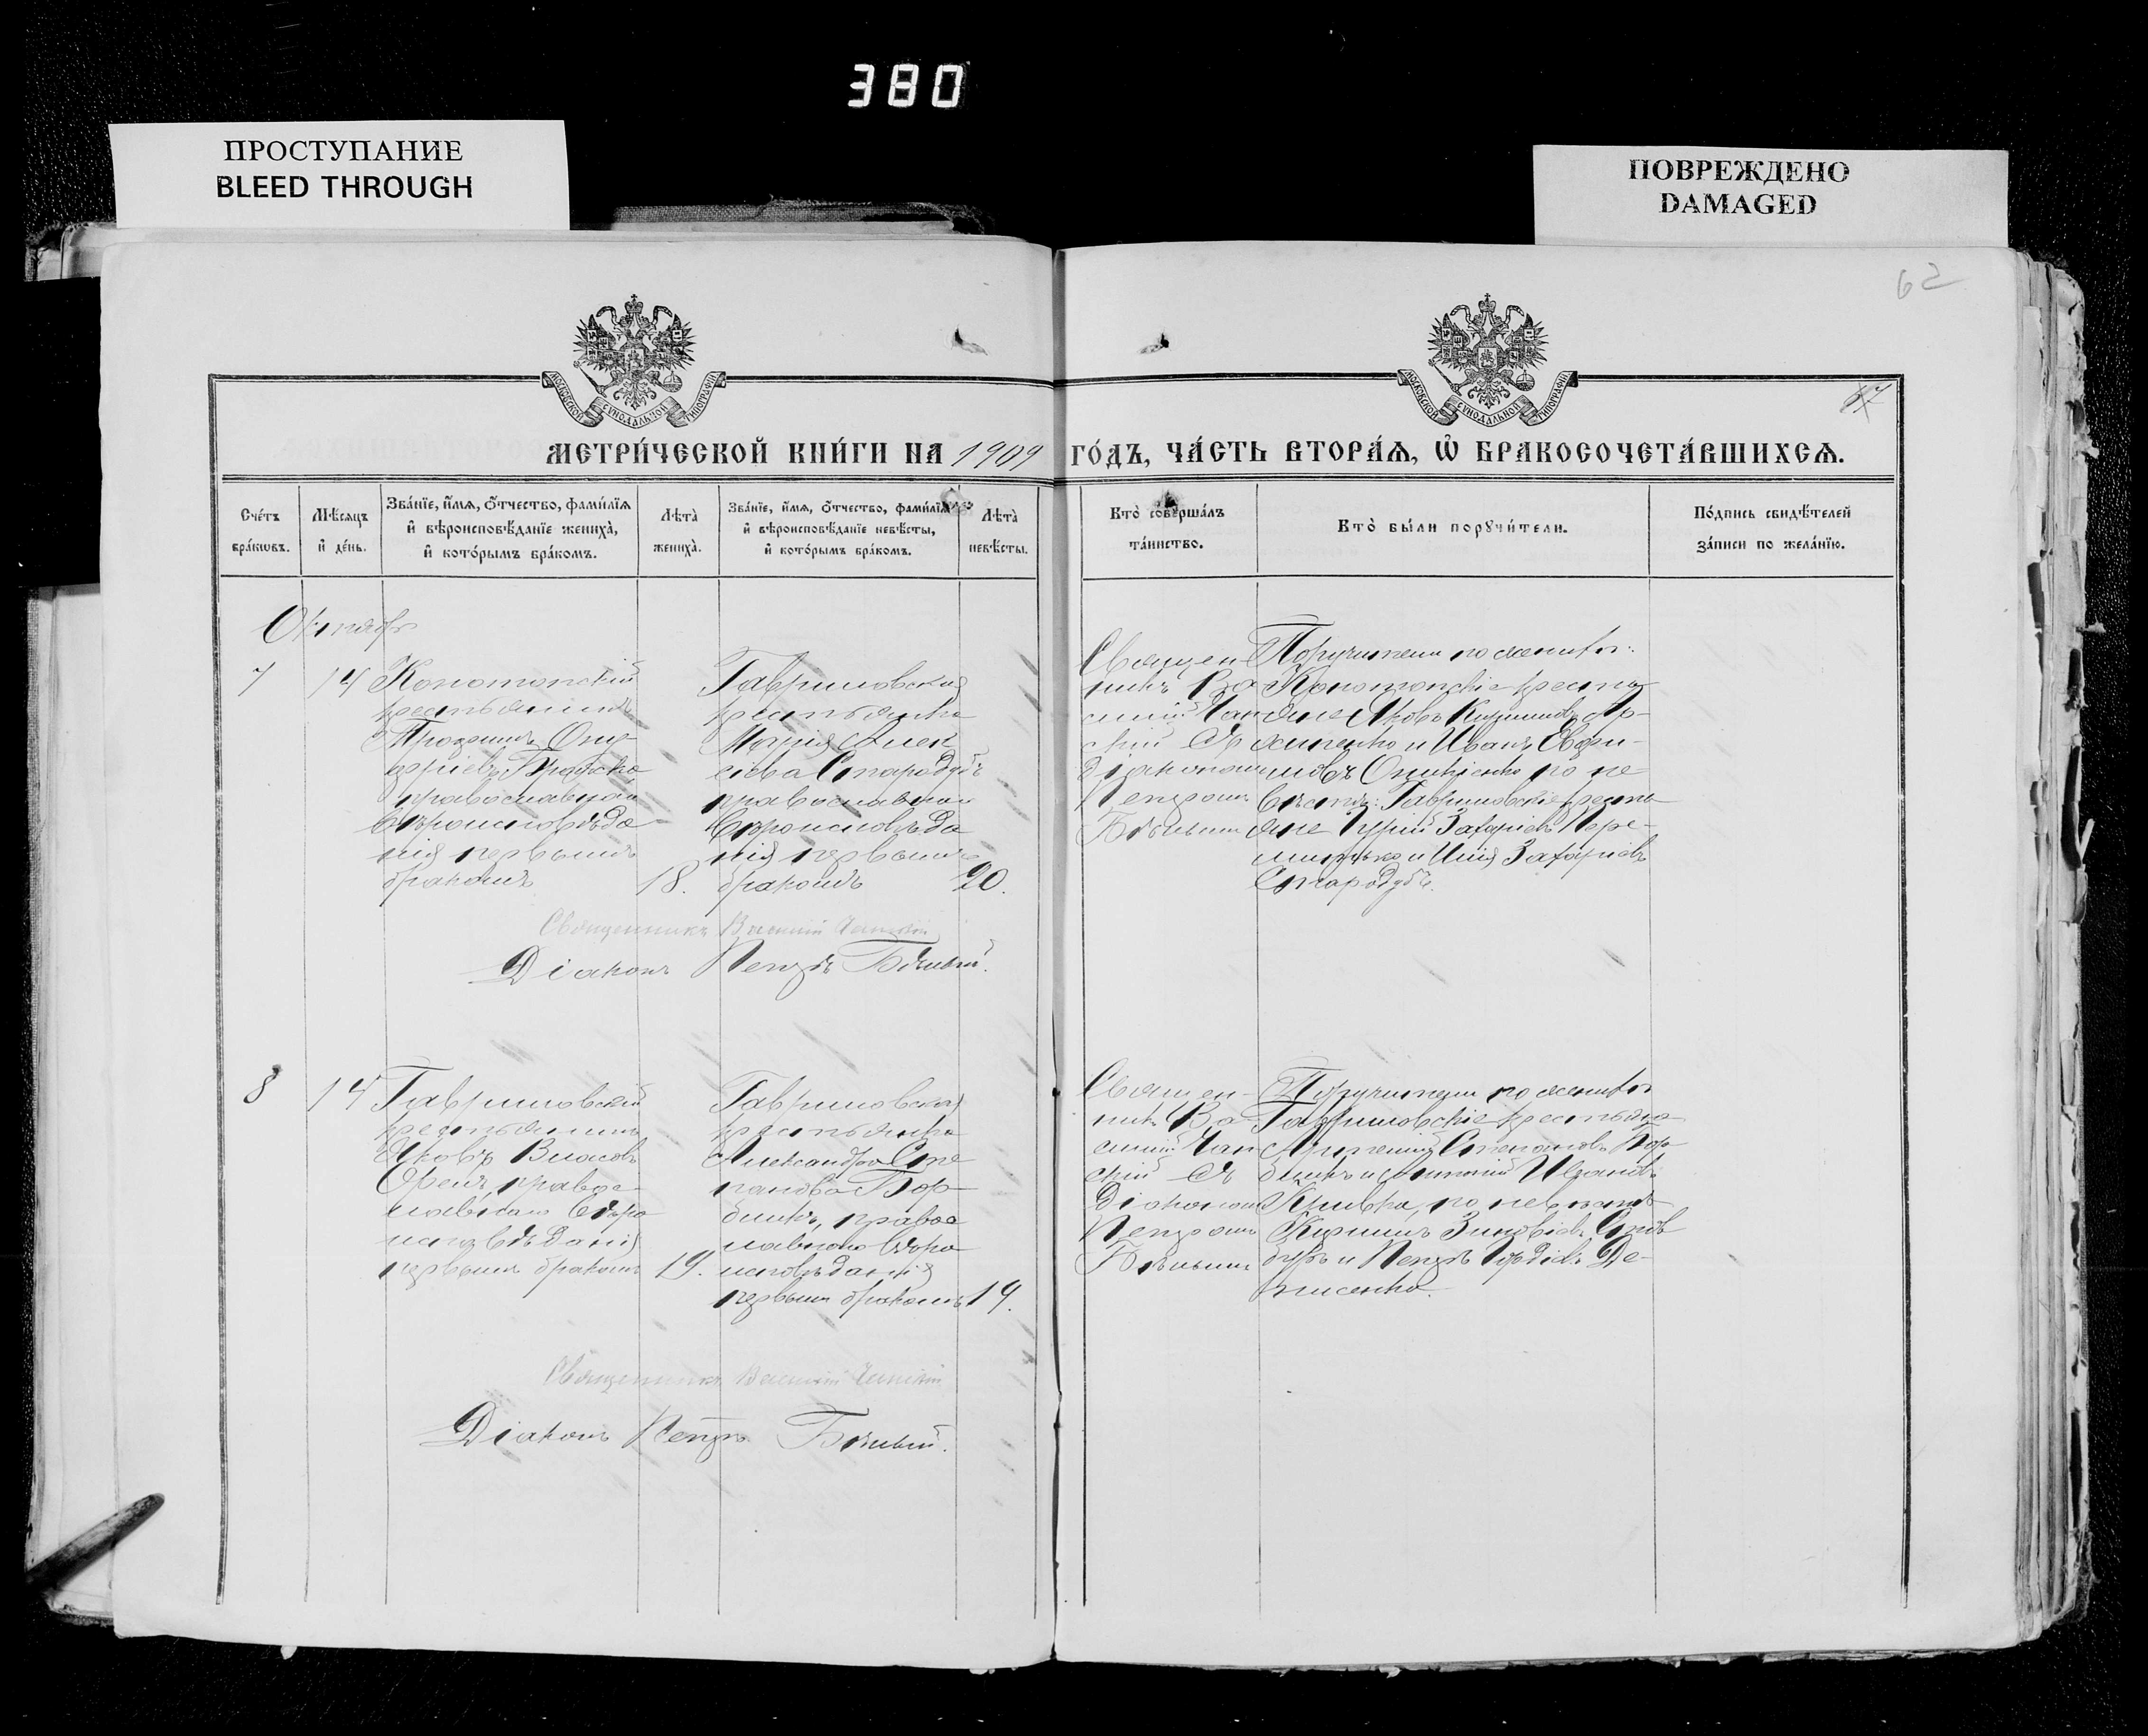 380
ПРОСТУПАНИЕ
BLEED THROUGH
ПОВРЕЖДЕНО
DAMAGED
62
МОСКОВСКОЙ СѴНОДАЛЬНОЙ ТИПОГРАФІИ
МОСКОВСКОЙ СѴНОДАЛЬНОЙ ТИПОГРАФІИ
МЕТРИ́ЧЕСКОЙ КНИ́ГИ НА 1909 ГО́ДЪ, ЧА́СТЬ ВТОРА́Ѧ, Ѡ҆ БРАКОСОЧЕТА́ВШИХСѦ.
Сче́тъ
бра́кѡвъ.
Мѣ́сѧцъ
и҆ де́нь.
Зва́нїе, и҆́мѧ, ѻ҆́тчество, фами́лїѧ
и҆ вѣроисповѣ́данїе жениха̀,
и҆ кото́рымъ бра́комъ.
Лѣ́та̀
жениха̀.
Зва́нїе, и҆́мѧ, ѻ҆́тчество, фами́лїѧ
и҆ вѣроисповѣ́данїе невѣ́сты,
и҆ кото́рымъ бра́комъ.
Лѣ́та̀
невѣ́сты.
Кто̀ соверша́лъ
та́инство.
Кто̀ бы́ли порꙋчи́тели.
По́дпись свидѣ́телей
за́писи по жела́нїю.
Октябрь
7
14
Конотопскій
крестьянинъ
Трофимъ Ону-
фріевъ
православнаго
вѣроисповѣда
нія первымъ
бракомъ
18.
Гавриловская
крестьянка
Марія Алек
сіева Стародубъ
православнаго
вѣроисповѣда
нія первымъ
бракомъ
20.
Священ-
никъ Ва
силій Чап
скій съ
діакономъ
Петромъ
Бѣлымъ
Поручители по женихѣ:
Конотопскіе крестья
яне Яковъ Кирилловъ Ар-
хипенко и Иванъ
по не
вѣстѣ: Гавриловскіе крестья
яне Гурій Захаріевъ
и Илія Захаріевъ
Стародубъ.
Священникъ Василій Чапскій
Діаконъ Петръ Бѣлый.
8
14
Гавриловскій
крестьянинъ
Яковъ Власовъ
Орелъ, правос
лавнаго вѣро
исповѣданія
первымъ бракомъ
19.
Гавриловская
крестьянка
Александра Сте
панова Бор-
бликъ, правос
лавнаго вѣро
исповѣданія
первымъ бракомъ
19.
Священ-
никъ Ва
силій Чап
скій съ
Діакономъ
Петромъ
Бѣлымъ
Поручители по женихѣ
Гавриловскіе крестьяне
Степановъ Бор
бликъ и Иванъ
по невѣстѣ
Кириллъ Зиновіевъ
и Петръ Гордіевъ Де-
нисенко.
Священникъ Василій Чапскій
Діаконъ Петръ Бѣлый.